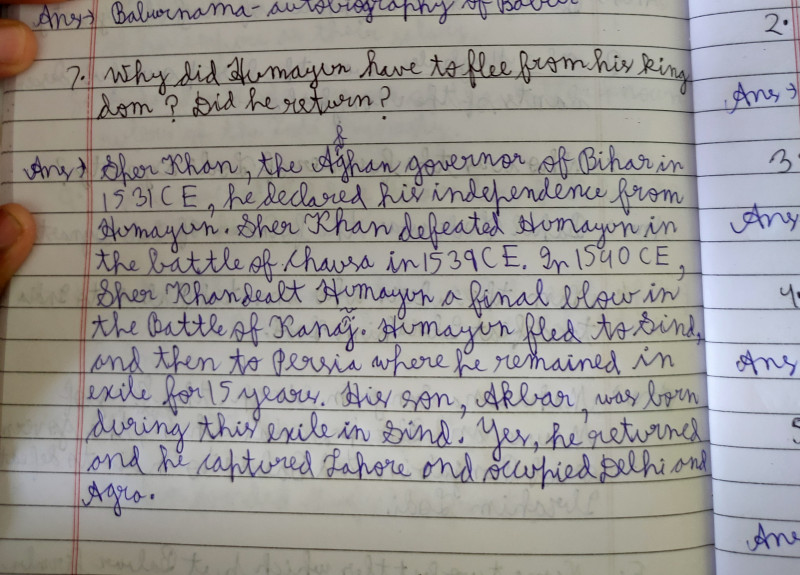 Ans→ Baburnama - autobiography of Babar
7. Why did Humayun have to flee from his king
dom? Did he return?
Ans→ Sher Khan, the Afghan governor of Bihar in
1531 CE, he declared his independence from
Humayun. Sher Khan defeated Humayun in
the battle of Chausa in 1539 CE. In 1540 CE,
Sher Khan dealt Humayun a final blow in
the Battle of Kanauj. Humayun fled to Sind,
and then to Persia where he remained in
exile for 15 years. His son, Akbar, was born
during this exile in Sind. Yes, he returned
and he captured Lahore and occupied Delhi and
Agra.
2.
Ans→
3.
Ans
4.
Ans
5
Ans